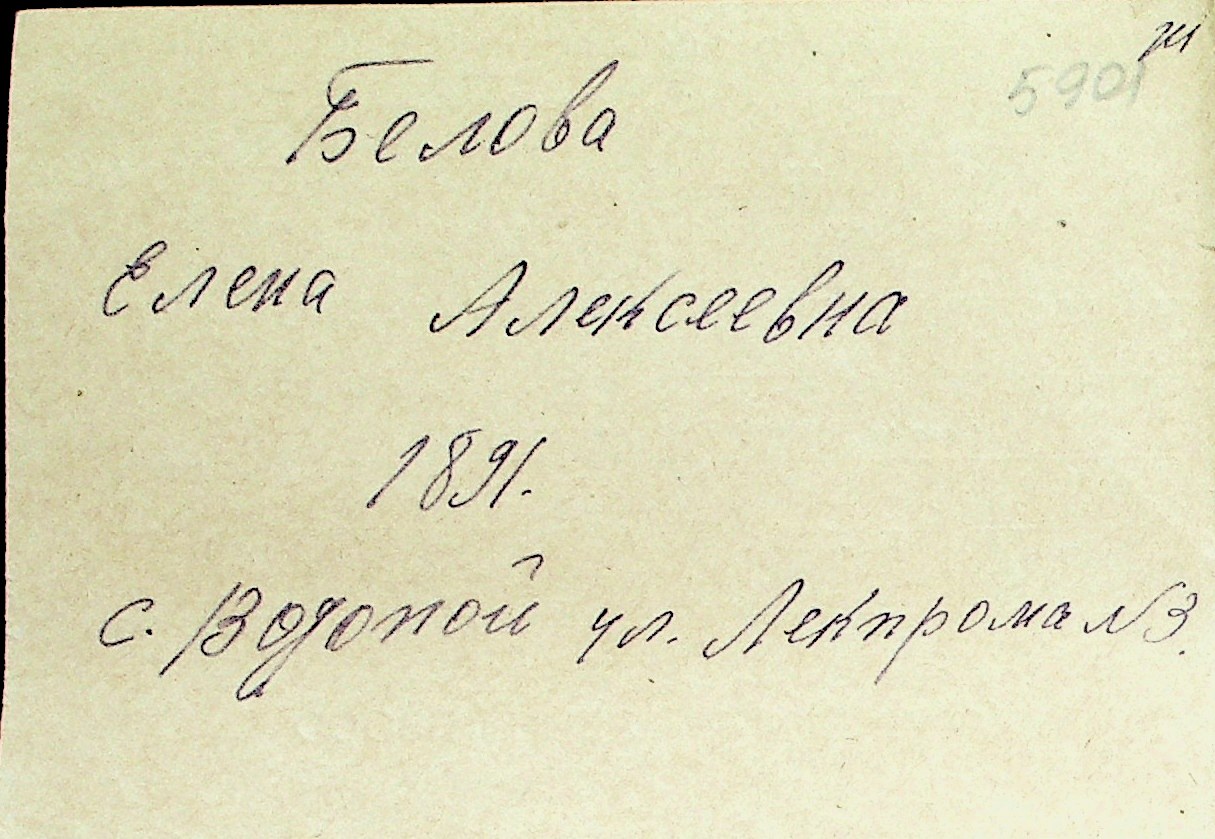 5901
Белова
Елена Алексеевна
1891.
с. Водопой ул. Лекпрома №3.